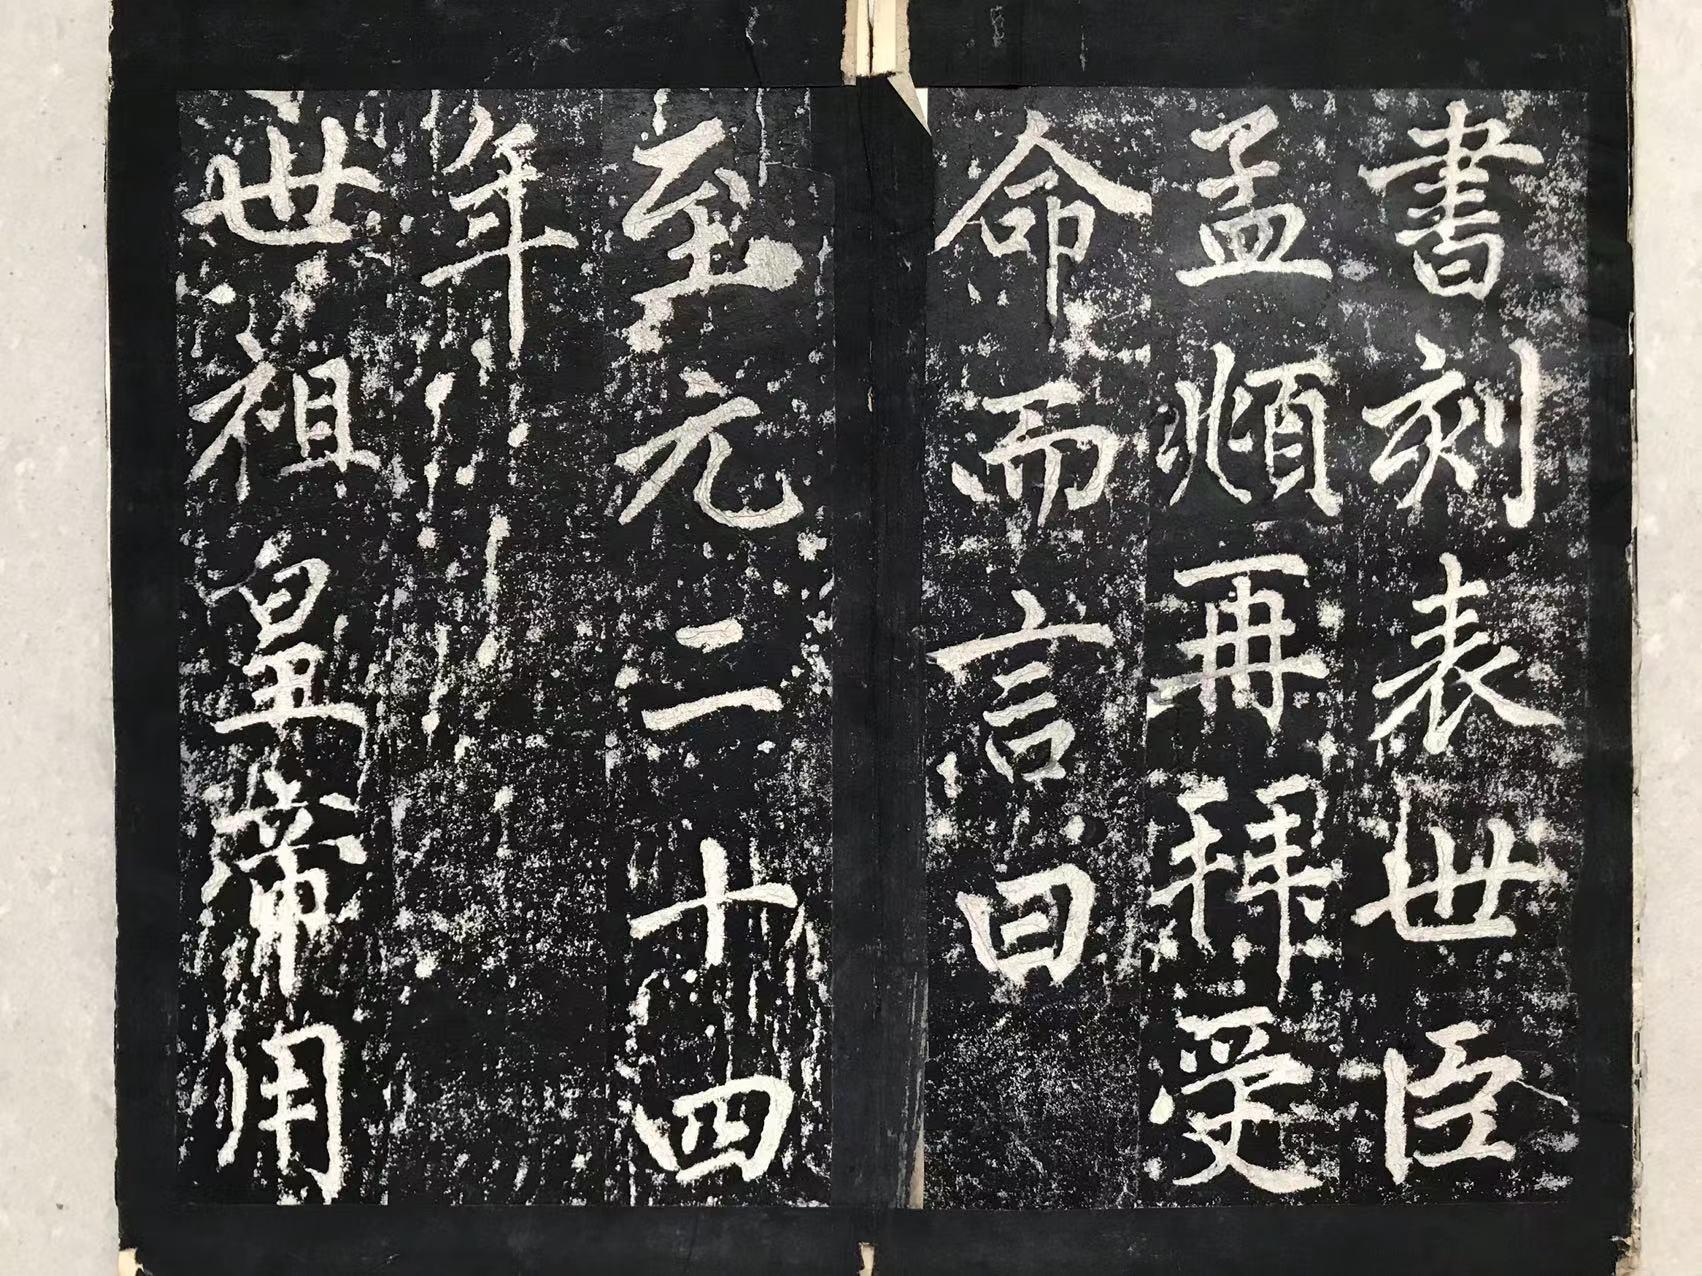 書刻表世臣
孟頫再拜受
命而言曰
至元二十四
年
世祖皇帝用